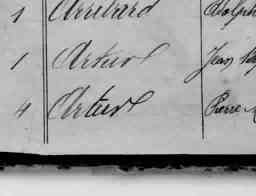 1 Arribard Adolph
1 Artur Jean
4 Artur Pierre